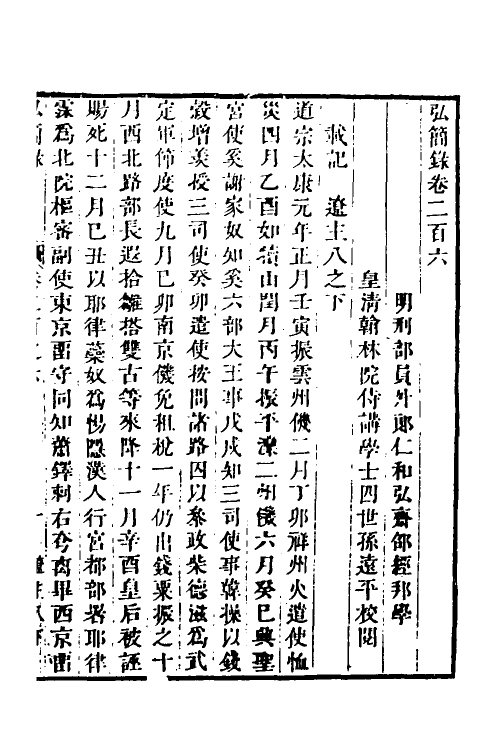 弘簡錄卷二百六
明刑部員外郎仁和弘齋邵經邦學
皇清翰林院侍講學士四世孫遠平校閱
載記 遼主八之下
道宗太康元年正月壬寅振雲州饑二月丁卯祥州火遣使恤
災四月乙酉如犢山閏月丙午振平灤二州饑六月癸巳興聖
宮使奚謝家奴知奚六部大王事戊戌知三司使事韓操以錢
穀增羨授三司使癸卯遣使按問諸路囚以參政柴德滋爲武
定軍節度使九月巳卯南京饑免租稅一年仍出錢粟振之十
月西北路部長遐拾雛搭雙古等來降十一月辛酉皇后被誣
賜死十二月巳丑以耶律藥奴爲惕隱漢人行宮都部署耶律
霂爲北院樞密副使東京畱守同知蕭鐸剌右夷离畢西京畱